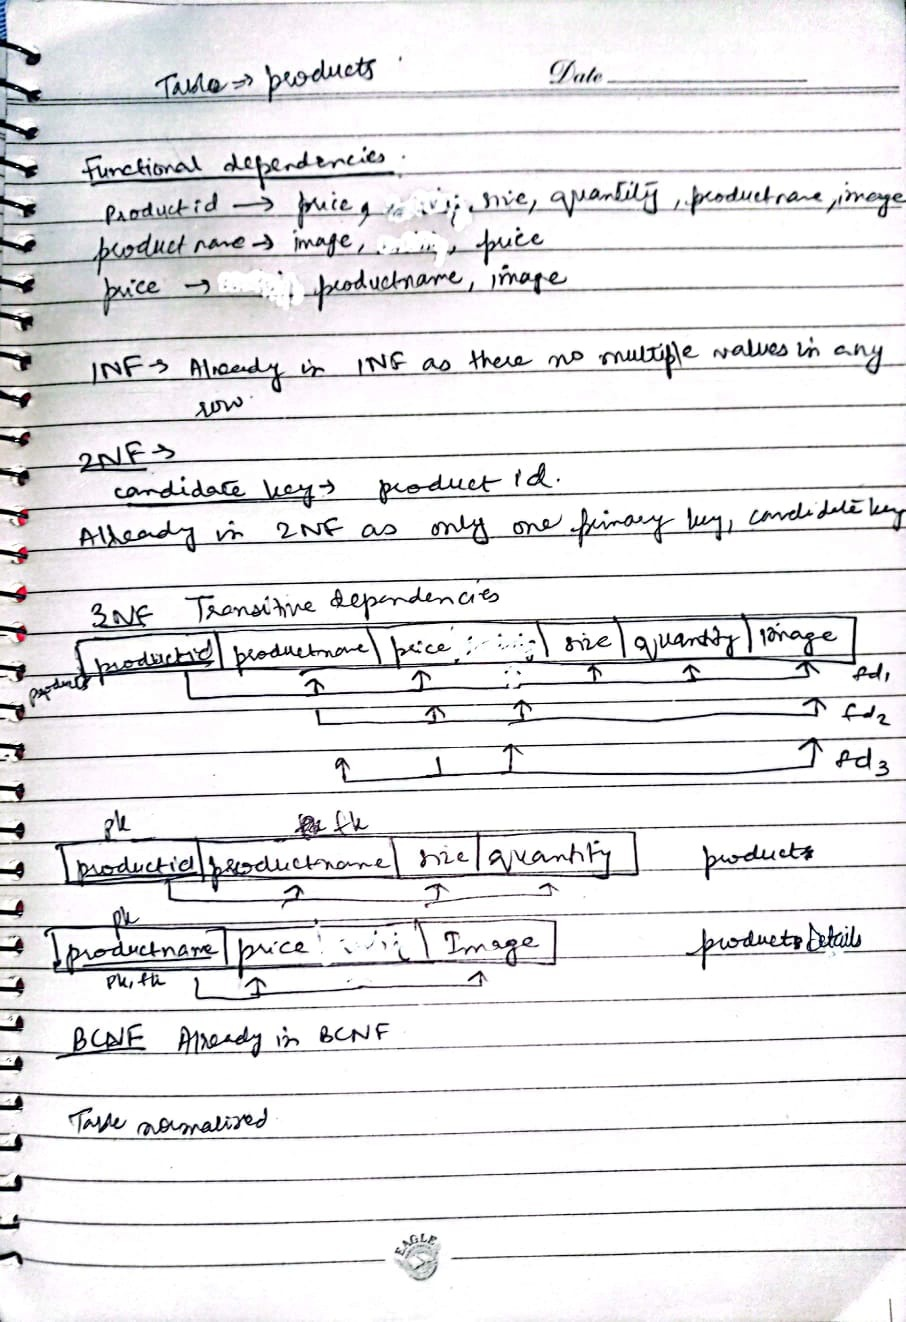 Table => products
Date
Functional dependencies.
Productid → price, size, quantity, productname, image
product name → image, , price
price → productname, image
1NF → Already in 1NF as there no multiple values in any
row.
2NF →
candidate key → product id.
Already in 2NF as only one primary key, candidate key
3NF Transitive dependencies
productid productname price size quantity image
products
fd1
fd2
fd3
pk fk
productid productname size quantity products
pk
productname price Image products Details
pk, fk
BCNF Already in BCNF
Table normalized.
EAGLE